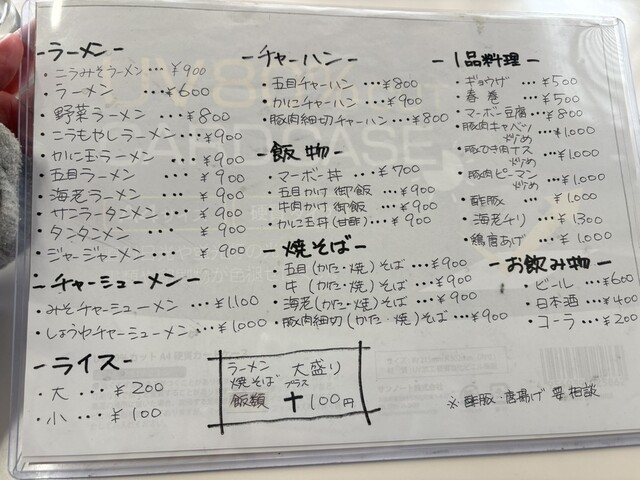 -ラーメン-
・ニラみそラーメン…¥900
・ラーメン …¥600
・野菜ラーメン …¥800
・ニラもやしラーメン…¥900
・かに玉ラーメン …¥900
・五目ラーメン …¥900
・海老ラーメン …¥900
・サンラータンメン …¥900
・タンタンメン …¥900
・ジャージャーメン …¥900
-チャーシューメン-
・みそチャーシューメン …¥1,100
・しょうゆチャーシューメン…¥1,000
-ライス-
・大 …¥200
・小 …¥100
-チャーハン-
・五目チャーハン …¥800
・かにチャーハン …¥900
・豚肉細切チャーハン …¥800
-飯物-
・マーボー丼 …¥700
・五目かけ御飯 …¥900
・牛肉かけ御飯 …¥900
・かに玉丼(甘酢) …¥900
-焼そば-
・五目(かた・焼)そば …¥900
・牛(かた・焼)そば …¥900
・海老(かた・焼)そば …¥900
・豚肉細切(かた・焼)そば …¥900
ラーメン
焼そば
飯類
大盛り
プラス
+100円
-1品料理-
・ギョウザ …¥500
・春巻 …¥500
・マーボー豆腐 …¥800
・豚肉キャベツ炒め …¥1,000
・豚ひき肉ナス炒め …¥1,000
・豚肉ピーマン炒め …¥1,000
・酢豚 …¥1,000
・海老チリ …¥1300
・鶏唐あげ …¥1,000
-お飲み物-
・ビール …¥600
・日本酒 …¥400
・コーラ …¥200
※酢豚・唐揚げ要相談